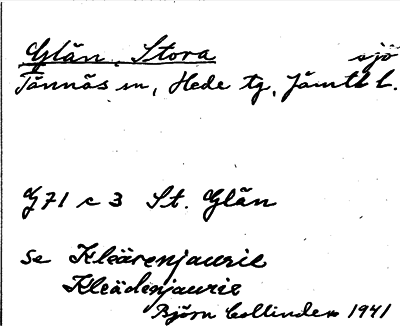 Glän, Stora sjö
Tännäs sn, Hede tg, Jämtl l.
G71 c 3 St. Glän
se Kleärenjaurie
Kleädenjaurie
Björn Collinder 1941